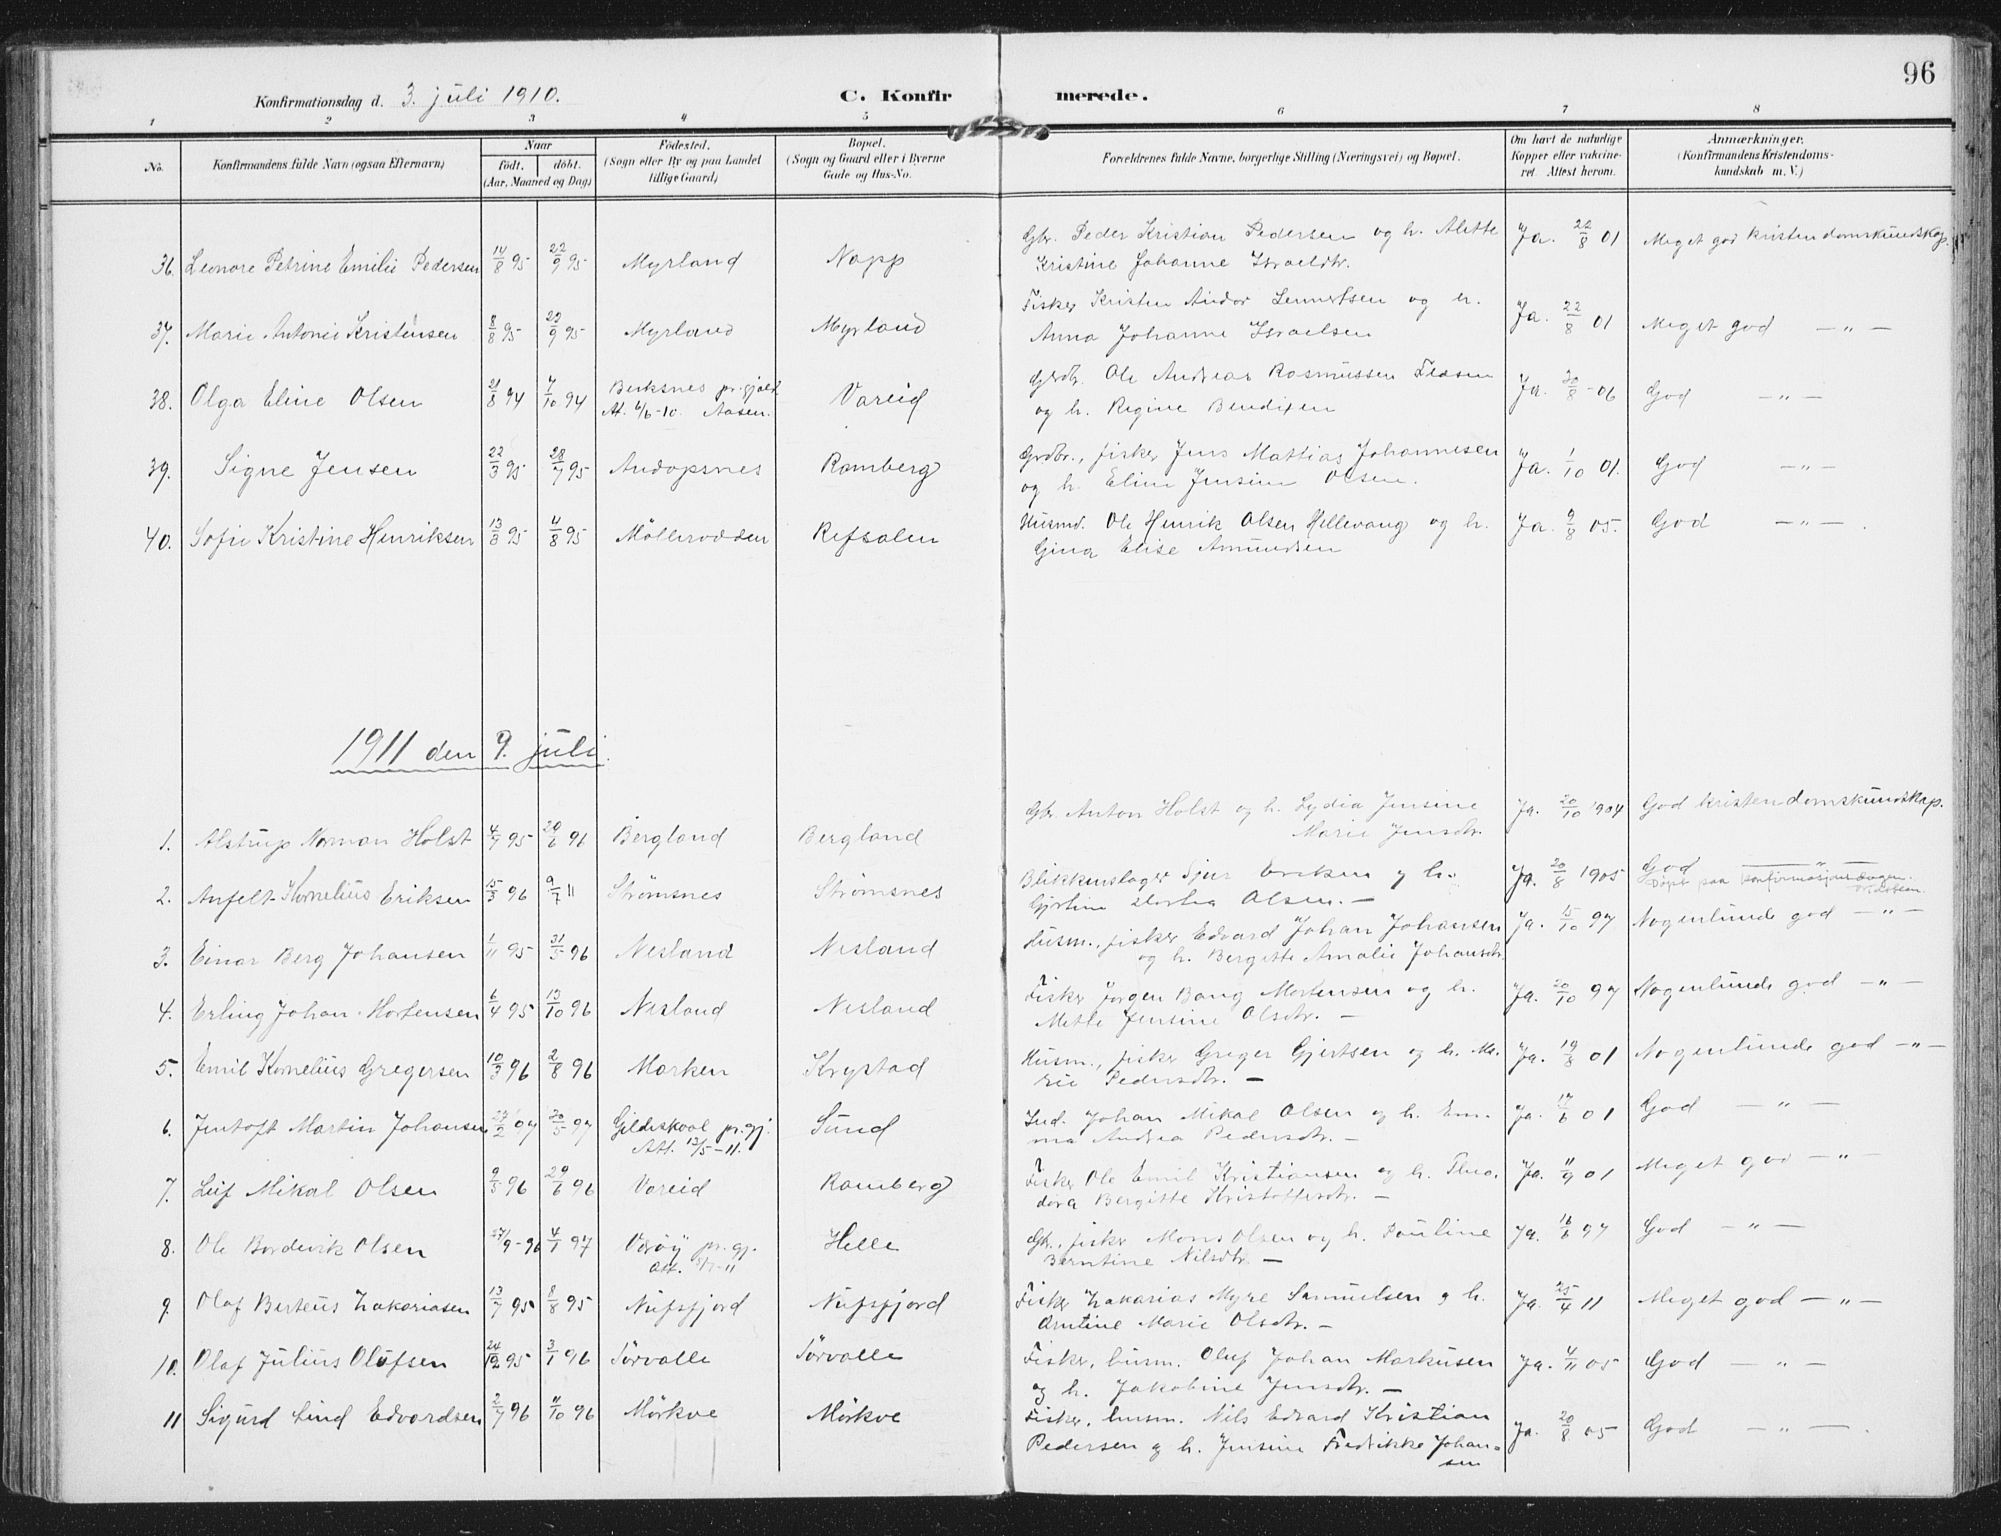 96
Konfirmationsdag d. 3. juli 1910.
C. Konfirmerede.
1 2 3 4 5 6 7 8
No.
Konfirmandens fulde Navn (ogsaa Efternavn)
Naar
født. døbt.
(Aar, Maaned og Dag)
Fødested.
(Sogn eller By og paa Landet
tillige Gaard)
Bopæl.
(Sogn og Gaard eller i Byerne
Gade og Hus-No.
Forældrenes fulde Navne, borgerlige Stilling (Næringsvei) og Bopæl.
Om havt de naturlige
Kopper eller vakcine-
ret. Attest herom.
Anmærkninger.
(Konfirmandens Kristendoms-
kundskab m. V.)
36. Leonore Petrine Emilie Pedersen 14/8 95 22/9 95 Myrland Napp Gbr. Peder Kristian Pedersen og h. Alette Ja. 22/8 01 Meget god kristendomskundskap.
Kristine Johanne Israelsdtr.
37. Marie Antonie Kristensen 8/8 95 22/9 95 Myrland Myrland Fisker Kristen Andor Lennertsen og h. Ja. 22/8 01 Meget god — " —
Anna Johanne Israelsen
38. Olga Eline Olsen 21/8 94 7/10 94 Berksnes pr.gjeld Vareid Grdbr. Ole Andreas Rasmussen og h. Regine Bendixen Ja. 30/8 - 06 God — " —
At. 6/6-10. Aasen.
39. Signe Jensen 22/3 95 28/7 95 Andopsnes Ramberg Grdbr., fisker Jens Mattias Johannesen Ja. 1/10 01. God — " —
og h. Eline Jensine Olsen.
40. Sofie Kristine Henriksen 13/3 95 4/8 95 Møllerodden Refsalen Husmd. Ole Henrik Olsen Hellevang og h. Ja. 9/8 05. God — " — .
Gina Elise Amundsen
1911 den 9. juli.
1. Alstrup Norman Holst 4/9 95 20/6 96 Bergland Bergland Gbr. Anton Holst og h. Lydia Jensine Ja. 20/10 1904 God kristendomskundskap.
Marie Jensdtr.
2. Anfelt Kornelius Eriksen 15/3 96 9/7 11 Strømsnes Strømsnes Blikkenslager Sjur Eriksen og h. Ja. 20/8 1905 God — " —
Olsen. — Døpt paa konfirmasjonsdagen.
3. Einar Berg Johansen 1/11 95 31/5 96 Nesland Nesland Husm., fisker Edvard Johan Johansen Ja. 15/10 97 Nogenlunde god — " —
og h. Bergitte Amalie Johansdtr.
4. Erling Johan Mortensen 6/4 95 13/10 96 Nesland Nesland Fisker Jørgen Bang Mortensen og h. Ja. 20/10 97 Nogenlunde god — " —
Mette Jensine Olsdtr. —
5. Emil Kornelius Gregersen 10/3 96 2/8 96 Marken Krystad Husm., fisker Greger Gjertsen og h. Ma- Ja. 19/8 01 Nogenlunde god — " —
rie Pedersdtr. —
6. Jentoft Martin Johansen 27/2 97 30/5 97 Gildeskaal pr.gj. Sund Ind. Johan Mikal Olsen og h. Em- Ja. 17/6 01 God — " —
Att. 12/5-11. ma Andrea Pedersdtr. —
7. Leif Mikal Olsen 9/5 96 29/6 96 Vareid Ramberg Fisker Ole Emil Kristiansen og h. Theo- Ja. 11/9 01 Meget god — " —
dora Bergitte Kristoffersdtr. —
8. Ole Bordevik Olsen 27/9-96 4/1 97 Værøy pr. gj. Helle Gbr., fisker Mons Olsen og h. Pauline Ja. 16/6 97 God — " —
Att. 5/7-11 Berntine Nilsdtr. —
9. Olaf Berteus Zakariasen 13/7 95 8/8 95 Nufsfjord Nufsfjord Fisker Zakarias Myre Samuelsen og h. Ja. 25/4 11 Meget god — " —
Arntine Marie Olsdtr. —
10. Olaf Julius Olufsen 24/12 95 3/1 96 Tørvalle Tørvalle Fisker, husm. Oluf Johan Markusen Ja. 4/11 05 God — " —
og h. Jakobine Jensdtr. —
11 Sigurd Lind Edvardsen 2/7 96 11/10 96 Mørkve Mørkve Fisker, husm. Nils Edvard Kristian Ja. 20/8 05 God — " — .
Pedersen og h. Jensine Fredrikke Johan-
sen